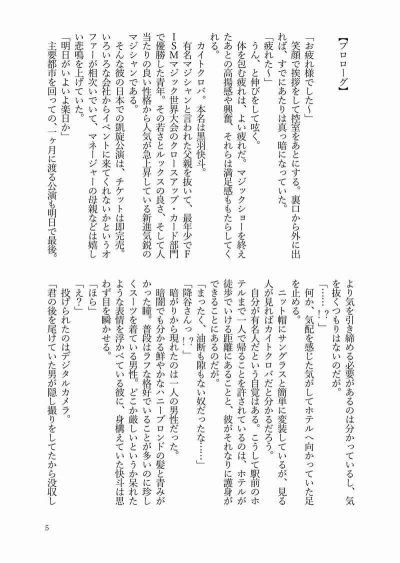 【プロローグ】
「お疲れ様でした〜」
笑顔で挨拶をして控室をあとにする。裏口から外に出
れば、すでにあたりは真っ暗になっていた。
「疲れた〜」
うん、と伸びをして呟く。
体を包む疲れは、よい疲れだ。マジックショーを終え
たあとの高揚感や興奮、それらは満足感ももたらしてく
れる。
カイトクロバ。本名は黒羽快斗。
有名マジシャンと言われた父親を抜いて、最年少でF
ISMマジック世界大会のクロースアップ・カード部門
で優勝した青年。その若さとルックスの良さ、そして人
当たりの良い性格から人気が急上昇している新進気鋭の
マジシャンである。
そんな彼の日本での凱旋公演は、チケットは即完売。
いろいろな会社からイベントに来てくれないかというオ
ファーが相次いでいて、マネージャーの母親などは嬉し
い悲鳴を上げていた。
「明日がいよいよ楽日か」
主要都市を回っての、一ヶ月に渡る公演も明日で最後。
より気を引き締める必要があるのは分かっているし、気
を抜くつもりはないのだが。
「……？！」
何か、気配を感じた気がしてホテルへ向かっていた足
を止める。
ニット帽にサングラスと簡単に変装しているが、見る
人が見ればカイトクロバだと分かるだろう。
自分が有名人だという自覚はある。こうして駅前のホ
テルまで一人で帰ることを許されているのは、ホテルが
徒歩でいける距離にあることと、彼がそれなりに護身が
できることにあるのだが。
「まったく、油断も隙もない奴だったな……」
「降谷さんっ！？」
暗がりから現れたのは一人の男性だった。
暗闇でも分かる鮮やかなハニーブロンドの髪と青みが
かった瞳。普段はラフな格好でいることが多いのに珍し
くスーツを着ている男性。どこか厳しいというか呆れた
ような表情を浮かべている彼に、身構えていた快斗は思
わず目を瞬かせる。
「ほら」
「え？」
投げられたのはデジタルカメラ。
「君の後を尾けていた男が隠し撮りをしてたから没収し
5